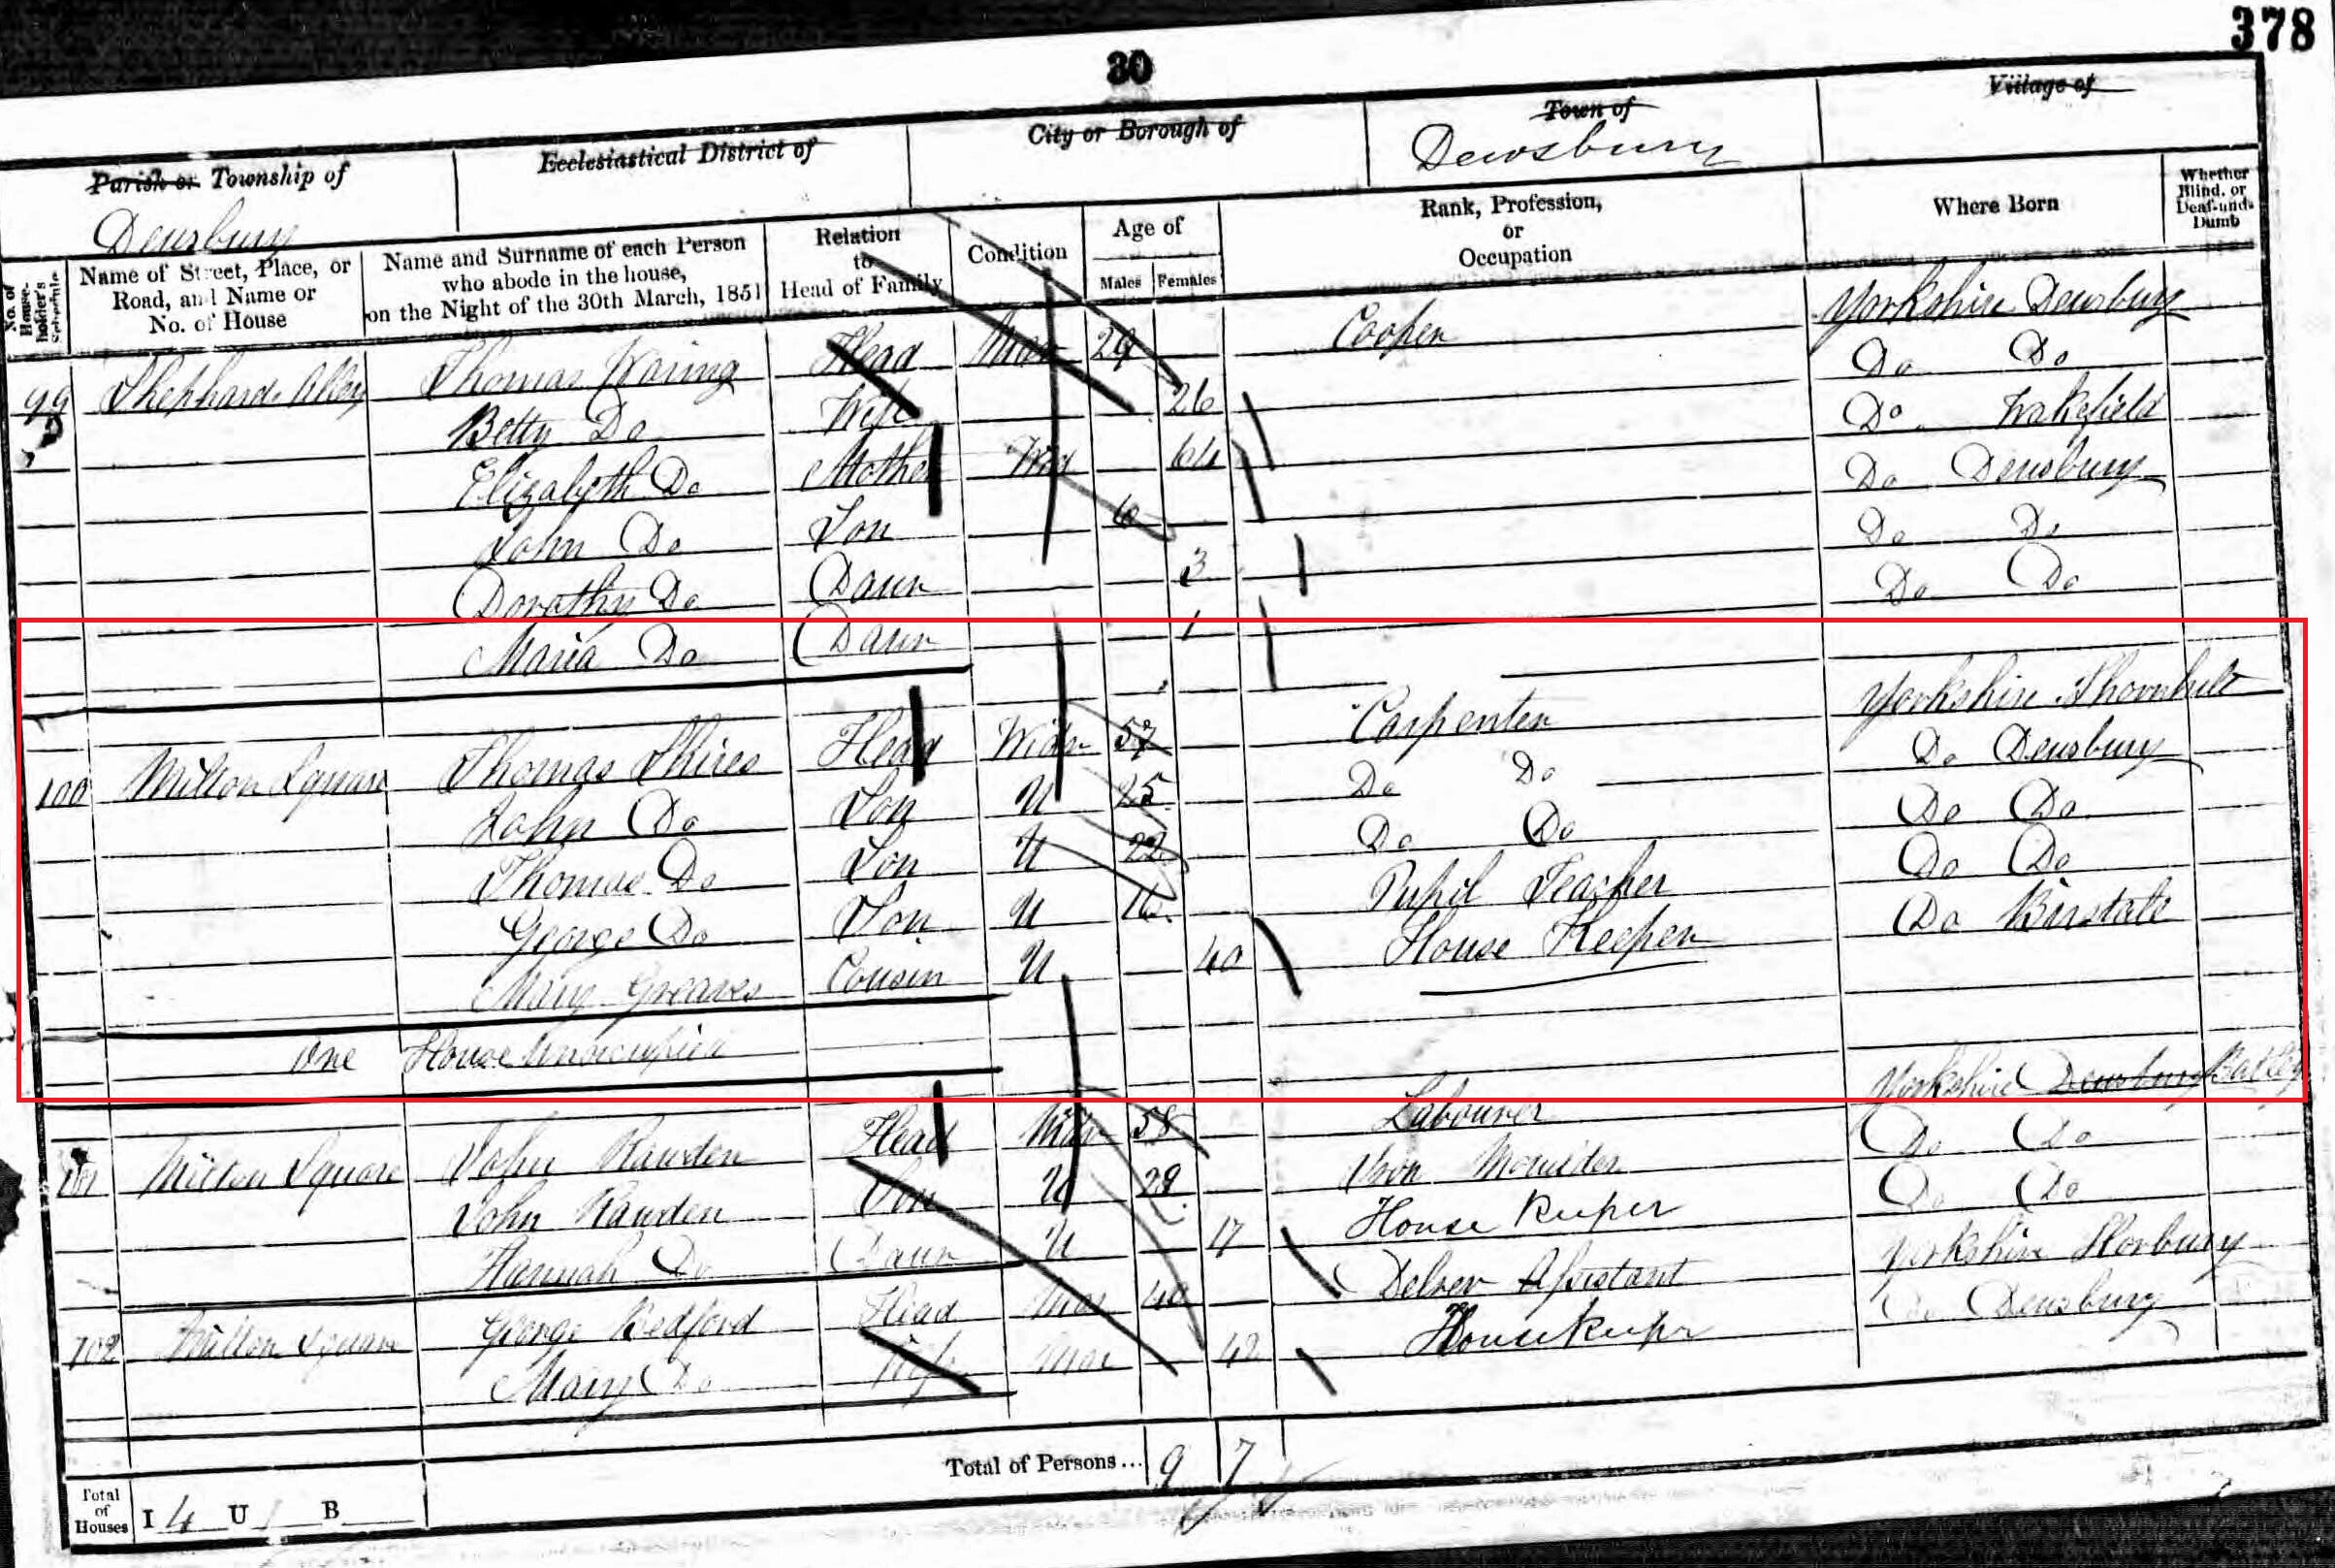 378
30
Parish or Township of
Ecclesiastical District of
City or Borough of
Town of
Village of
Dewsbury
Dewsbury
No. of House-holder's Schedule
Name of Street, Place, or Road, and Name or No. of House
Name and Surname of each Person who abode in the house, on the Night of the 30th March, 1851
Relation to Head of Family
Condition
Age of
Males
Females
Rank, Profession, or Occupation
Where Born
Whether Blind, or Deaf-and-Dumb
99 Shephards Alley Thomas Waring Head Mar 29 Cooper Yorkshire Dewsbury
Betty Do Wife 26 Do Do
Elizabeth Do Mother Wid 64 Do Wakefield
John Do Son 6 Do Dewsbury
Dorothy Do Daur 3 Do Do
Maria Do Daur 1 Do Do
100 Milton Square Thomas Shires Head Widr 57 Carpenter Yorkshire Thornhill
John Do Son U 25 Do Do Do Dewsbury
Thomas Do Son U 22 Do Do Do Do
George Do Son U 16 Pupil Teacher Do Do
Mary Greaves Cousin U 40 House Keeper Do Birstall
One House Unoccupied
101 Milton Square John Rawden Head Widr 58 Labourer Yorkshire Dewsbury Batley
John Rawden Son U 29 Iron Moulder Do Do
Hannah Do Daur U 17 House Keeper Do Do
102 Milton Square George Bedford Head Mar 40 Delver Assistant Yorkshire Horbury
Mary Do Wife Mar 42 House Keeper Do Dewsbury
Total of Houses I 4 U 1 B
Total of Persons... 9 7